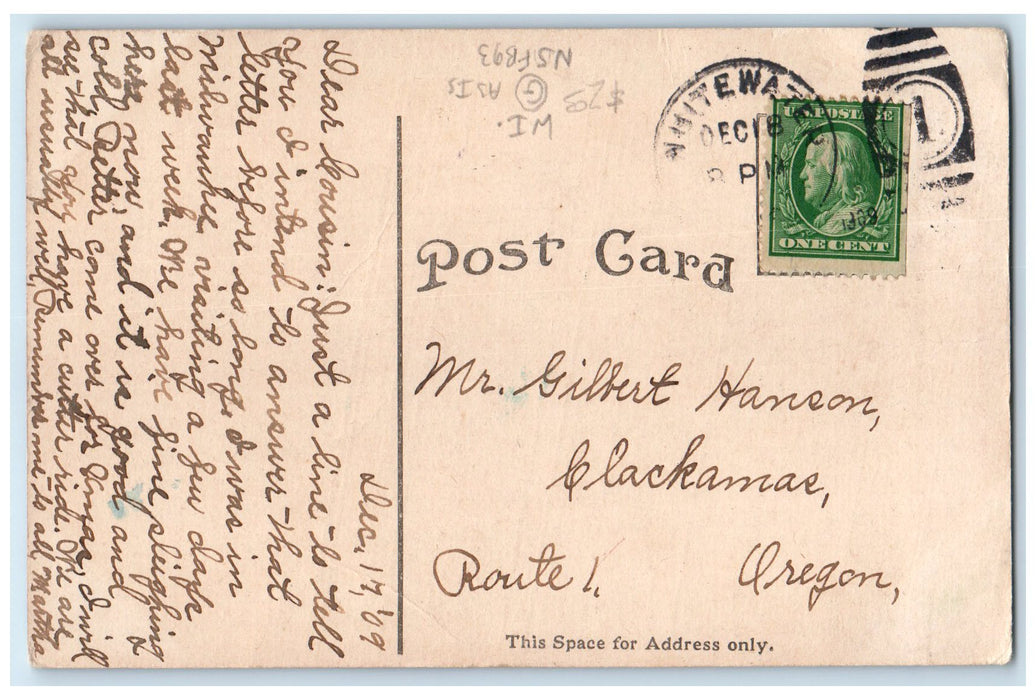 Dec, 17, '09
Dear Cousin: Just a line to tell
you I intend to answer that
letter before so long. I was in
Milwaukee visiting a few days
last week. We have fine sleighing
here now, and it is good and
cold, Better come over for Xmas, I will
see that you have a cutter ride. We are
all usually well, Remember me to all, Martha
WI.
$2.98 G As Is
NSFB93
WHITEWATE
DEC 18
8 PM
1
U.S. POSTAGE
ONE CENT
Post Card
Mr. Gilbert Hanson,
Clackamas,
Route 1. Oregon,
This Space for Address only.